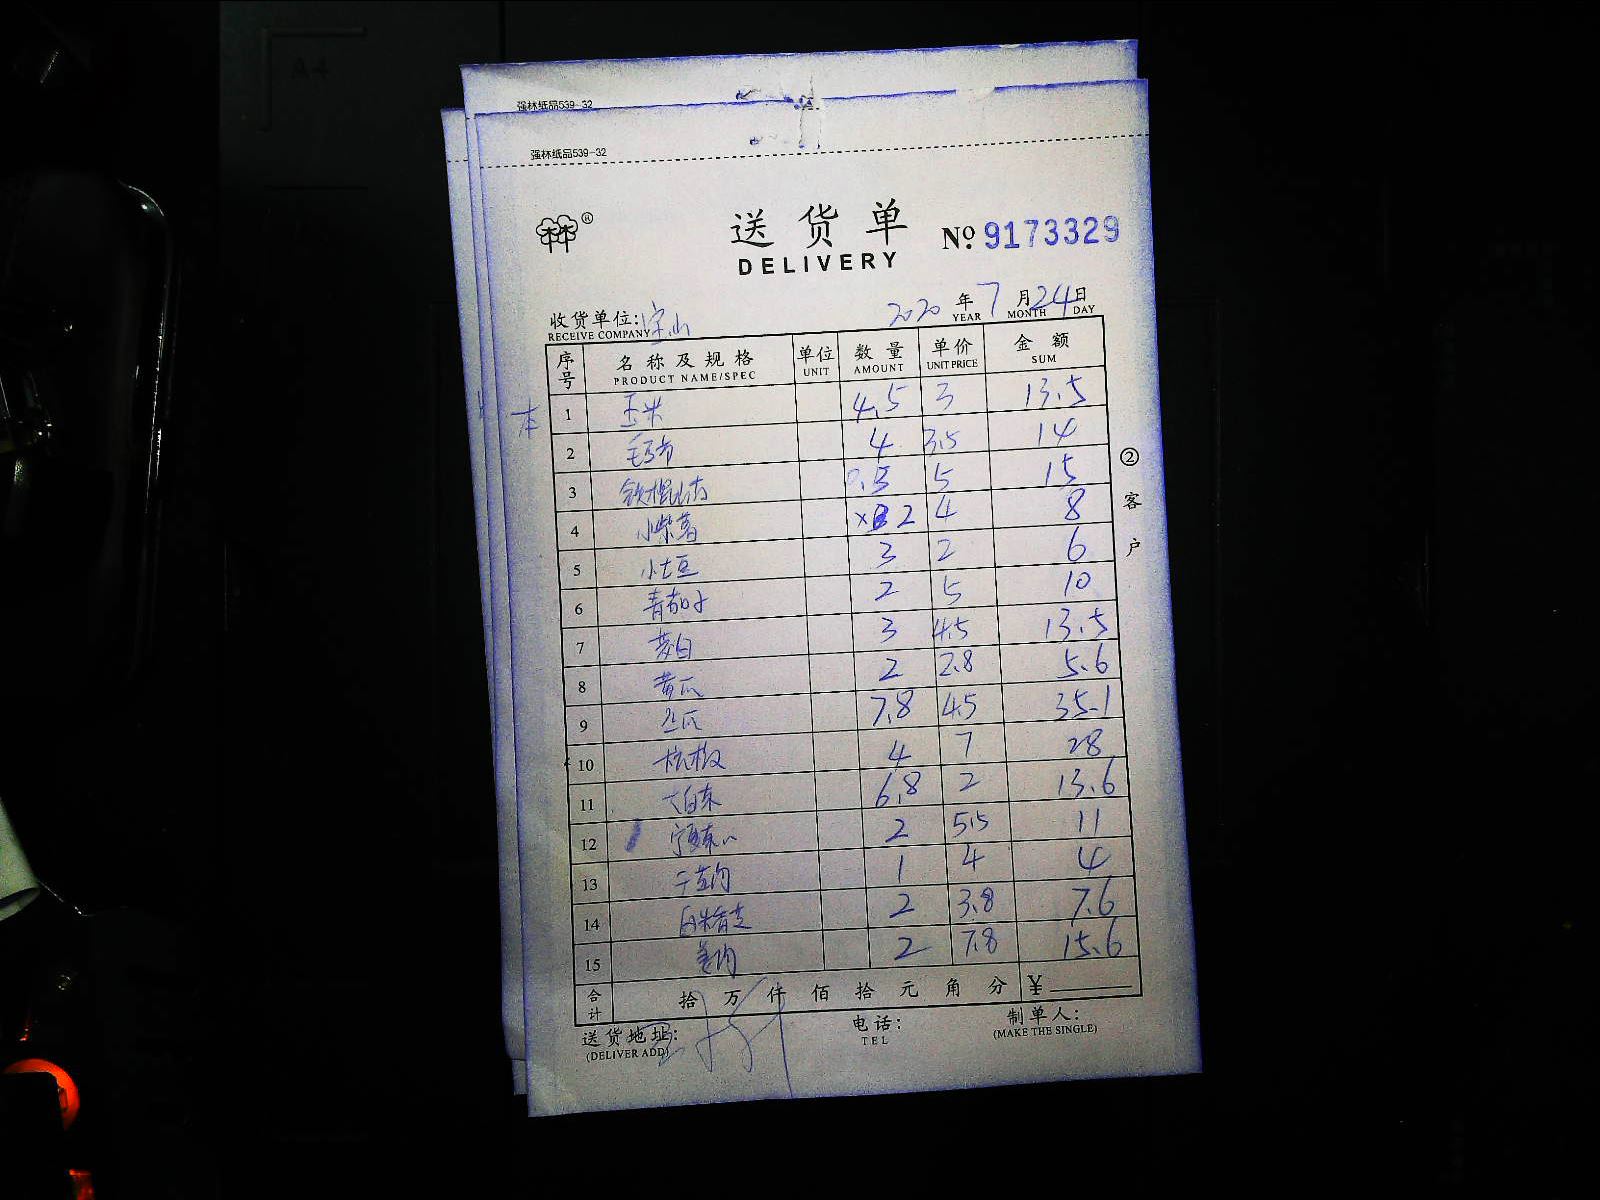 A4
强林纸品539-32
强林纸品539-32
林 ®
送货单 №9173329
DELIVERY
收货单位:宝山 2020年7月24日
RECEIVE COMPANY YEAR MONTH DAY
序号 名称及规格 单位 数量 单价 金额
PRODUCT NAME/SPEC UNIT AMOUNT UNIT PRICE SUM
本
1 玉米 4.5 3 13.5
2 毛豆节 4 3.5 14
3 铁棍山药 5 15
4 小紫薯 2 4 8
5 小土豆 3 2 6
6 青茄子 2 5 10
7 茭白 3 4.5 13.5
8 黄瓜 2 2.8 5.6
9 7.8 4.5 35.1
10 杭椒 4 7 28
11 6.8 2 13.6
12 2 5.5 11
13 1 4 4
14 2 3.8 7.6
15 姜肉 2 7.8 15.6
合计 拾万仟佰拾元角分 ¥
②客户
送货地址: 电话: 制单人:
(DELIVER ADD) TEL (MAKE THE SINGLE)